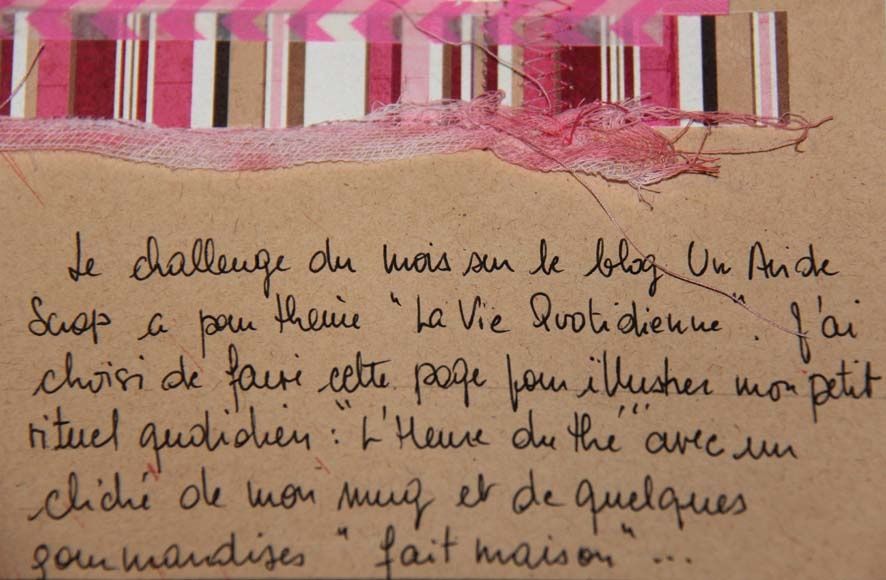 Le challenge du mois sur le blog Un Air de
Scrap a pour thème "La Vie Quotidienne". J'ai
choisi de faire cette page pour illustrer mon petit
rituel quotidien : "L'Heure du thé" avec un
cliché de mon mug et de quelques
gourmandises "fait maison"...